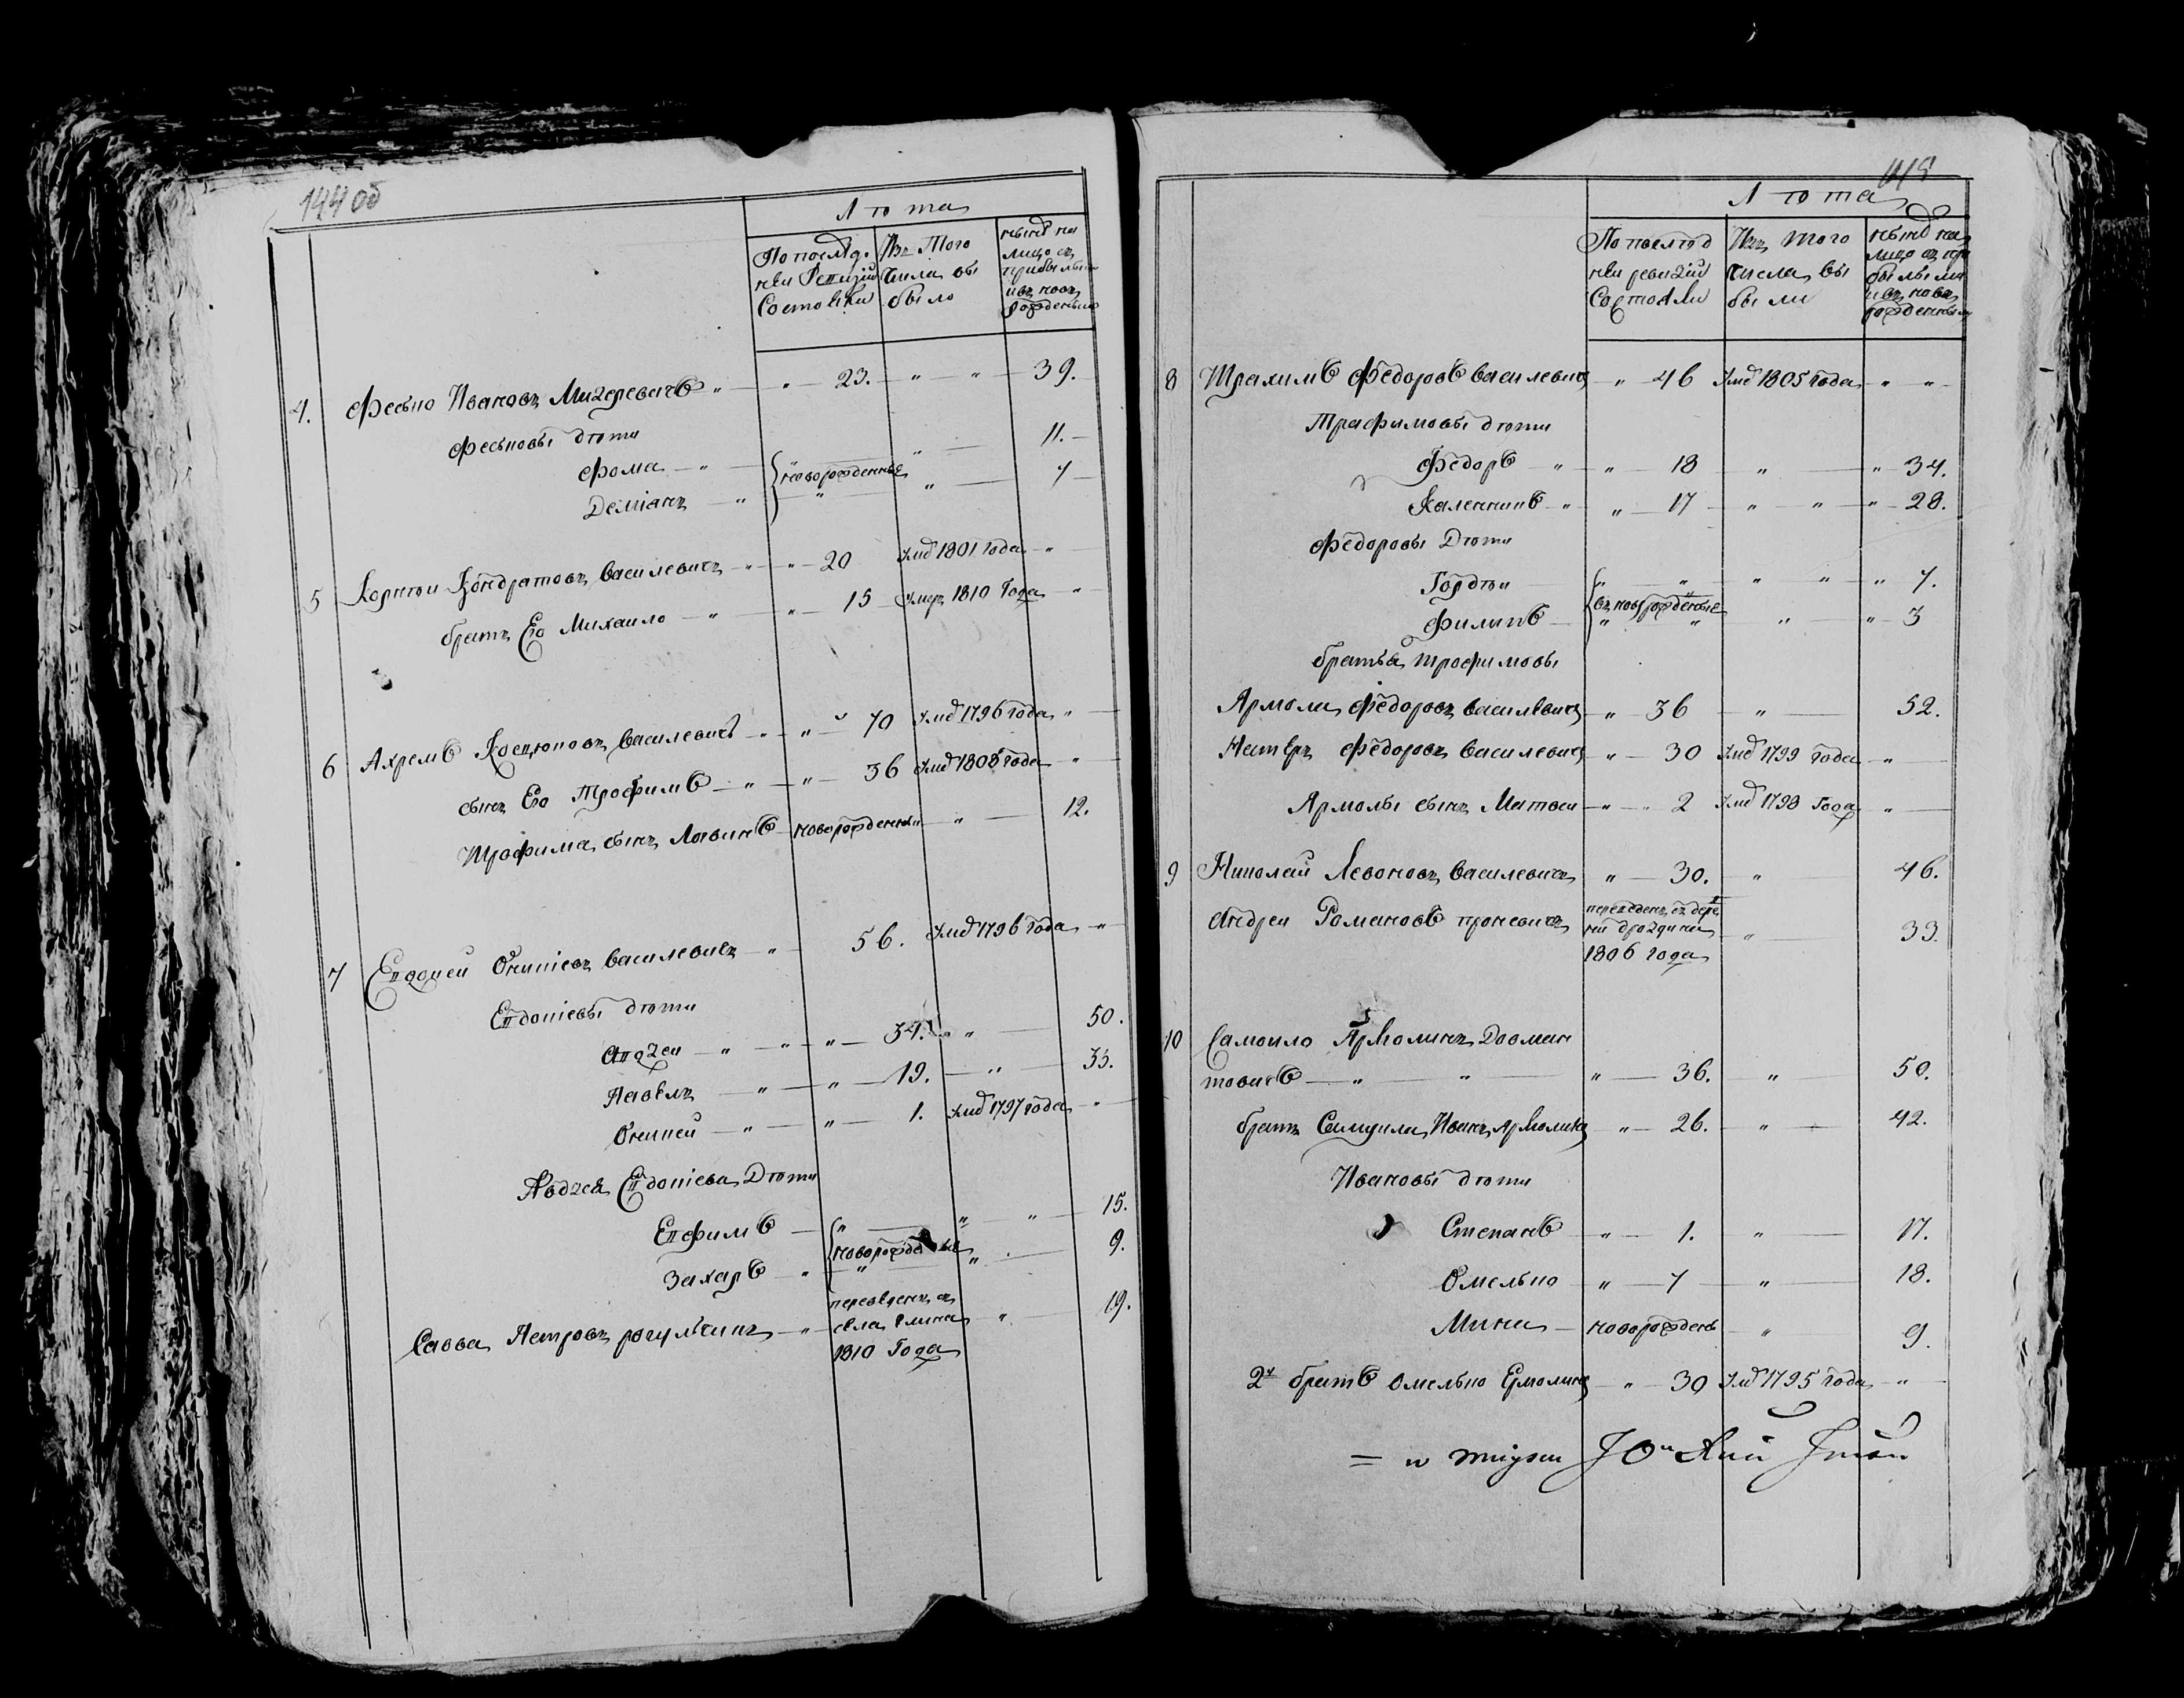 144 об
Лѣта
По послѣд. Изъ Того нынѣ на
ней Ревизіи числа вы лицо съ
Состояли было прибылыми
и въ новь
рожденными
4. Фесько Ивановъ Мигеревичъ " " 23. " " 39.
Феськовы дѣти
Фома " новорожденные " 11.
Деміянъ " " " 7
5 Корнѣи Кондратовъ Василевичъ " " 20 умѣ 1801 года "
братъ Его Михаило " " 15 умеръ 1810 Года "
6 Ахремъ Костюковъ Василевичъ " " 70 умѣ 1796 года "
сынъ Его Трофимъ " " 36 умѣ 1808 года "
Трофима сынъ Лавинъ новорожденный " 12.
7 Евдокей Оникіевъ Василевичъ " 56. умѣ 1796 года "
Евдокіевы дѣти
Авдей " " " 34. " 50.
Павелъ " " 19. " 35.
Оникей " " 1. умѣ 1797 года "
Авдея Евдокіева Дѣти
Евфимъ " " " 15.
новорожденные
Захаръ " " " 9.
переведенъ съ
Савва Петровъ рогулькинъ " села " 19.
1810 Года
Лѣта
По послѣд Изъ того нынѣ на
ней ревизіи числа вы лицо съ при
Состояли были былыми
и въ новь
рожденными
8 Трахимъ Федоровъ Василевичъ " 46 умѣ 1805 года " "
Трафимовы дѣти
Федоръ " " 18 " " 34.
Каленникъ " " 17 " " " 28.
Федоровы Дѣти
Гордѣи " " " " " 7.
въ новь рожденные
Филипъ " " " " 3
братья трофимовы
Армола Федоровъ Василевичъ " 36 " 52.
Нестеръ Федоровъ Василевичъ " 30 умѣ 1799 года "
Армолы сынъ Матвеи " 2 умѣ 1798 Года "
9 Николай Левоновъ Василевичъ " 30. " 46.
Андреи Романовъ проневичъ переведенъ съ дерев
ни " 33.
1806 года
10 Самоило Армолинъ Довмон
товичъ " " " 36. " 50.
братъ Самуила Иванъ Армолинъ " 26. " 42.
Ивановы дѣти
Степанъ " 1. " 17.
Омелько " 7 " 18.
Мина новорожденъ " 9.
2й братъ Омелько Ермолинъ " 30 умѣ 1795 года "